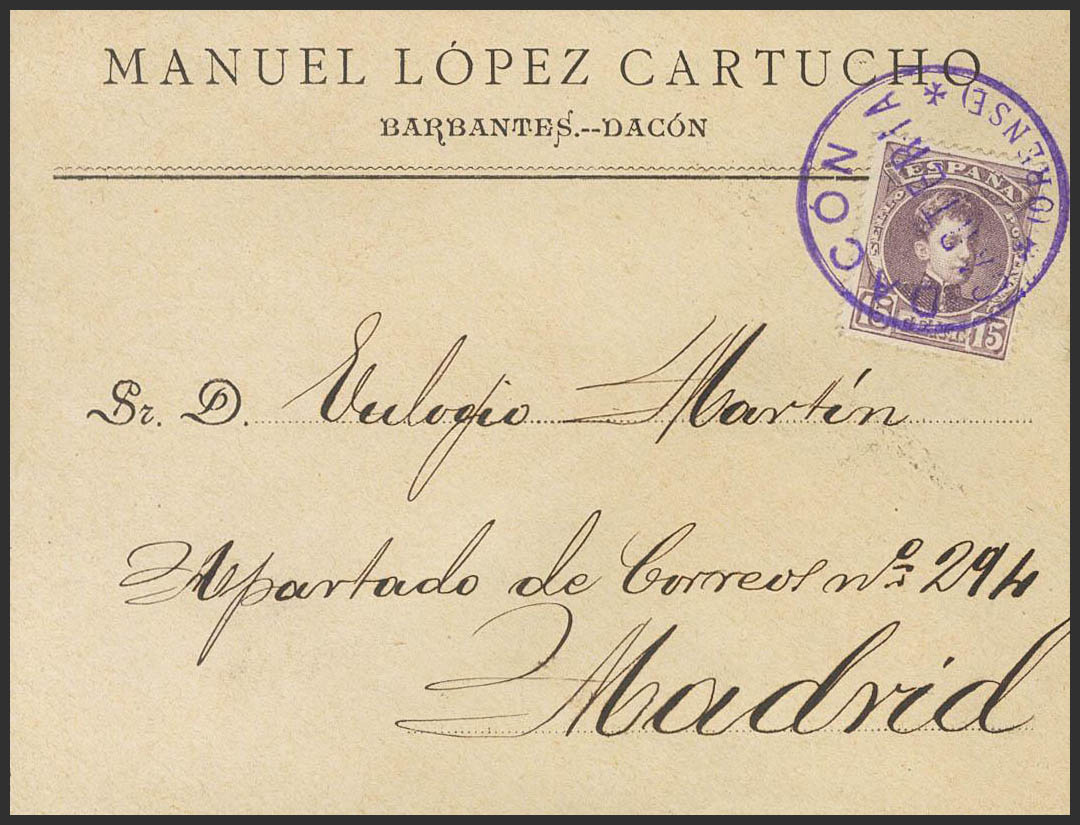 MANUEL LÓPEZ CARTUCHO
BARBANTES.--DACÓN
DACÓN * (ORENSE) *
CARTERÍA
ESPAÑA
SELLO POSTAL
15 CENT. 15
Sr. D. Eulogio Martín
Apartado de Correos nº 294
Madrid